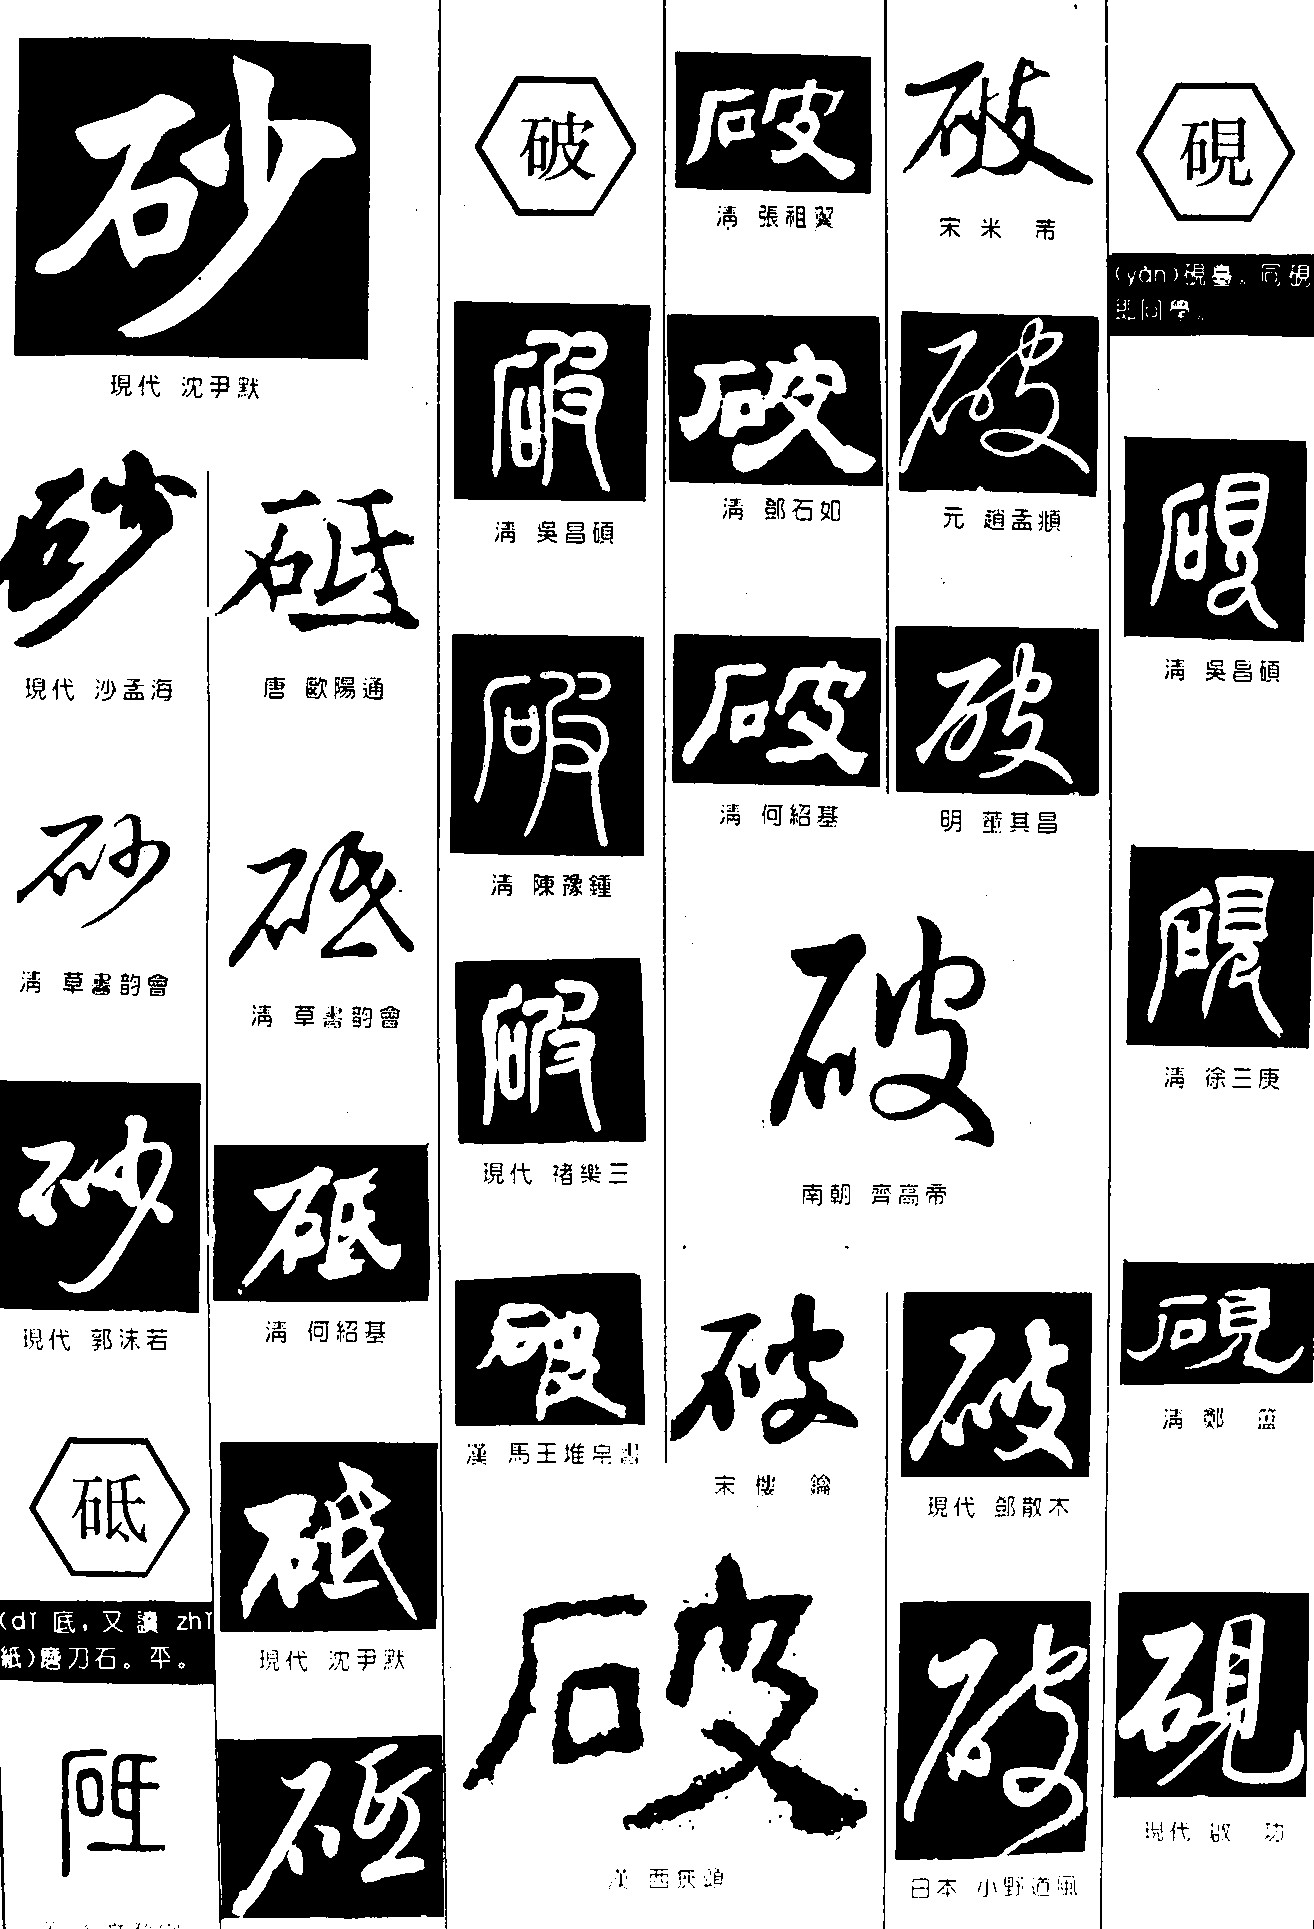 砂
現代 沈尹默
砂
現代 沙孟海
砂
清 草書韵會
砂
現代 郭沫若
砥
(dǐ 底，又讀 zhǐ
紙)磨刀石。平。
砥
砥
唐 歐陽通
砥
清 草書韵會
砥
清 何紹基
砥
現代 沈尹默
砥
破
破
清 吳昌碩
破
清 陳豫鍾
破
現代 褚樂三
破
漢 馬王堆帛書
破
清 張祖翼
破
清 鄧石如
破
清 何紹基
破
南朝 齊高帝
破
宋 樓 鑰
破
漢 西狹頌
破
宋 米 芾
破
元 趙孟頫
破
明 董其昌
破
現代 鄧散木
破
日本 小野道風
硯
(yàn)硯臺。同硯
即同學。
硯
清 吳昌碩
硯
清 徐三庚
硯
清 鄭 簠
硯
現代 啟 功